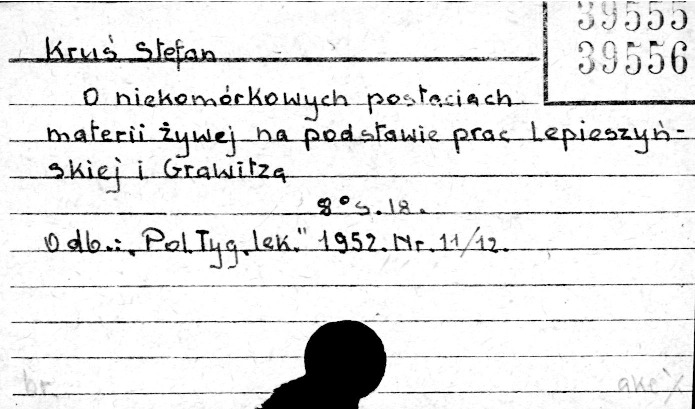 39555
39556
Kruś Stefan
O niekomórkowych postaciach
materii żywej na podstawie prac Lepieszyń-
skiej i Grawitza
8° s. 18.
Odb.: "Pol. Tyg. lek." 1952. Nr. 11/12.
br.